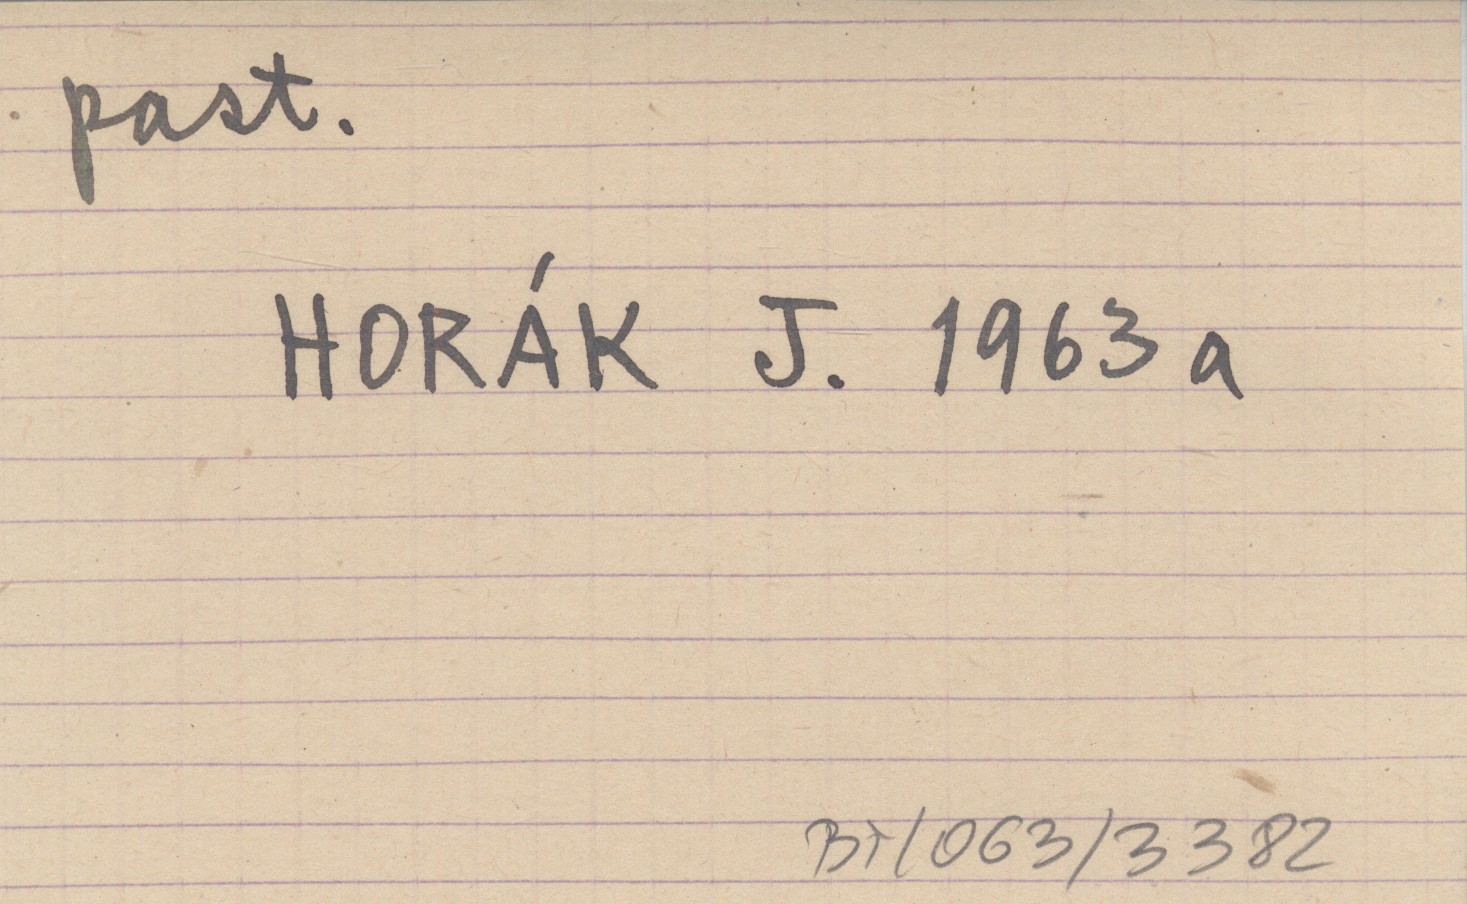 past.
HORÁK J. 1963a
BT/063/3382